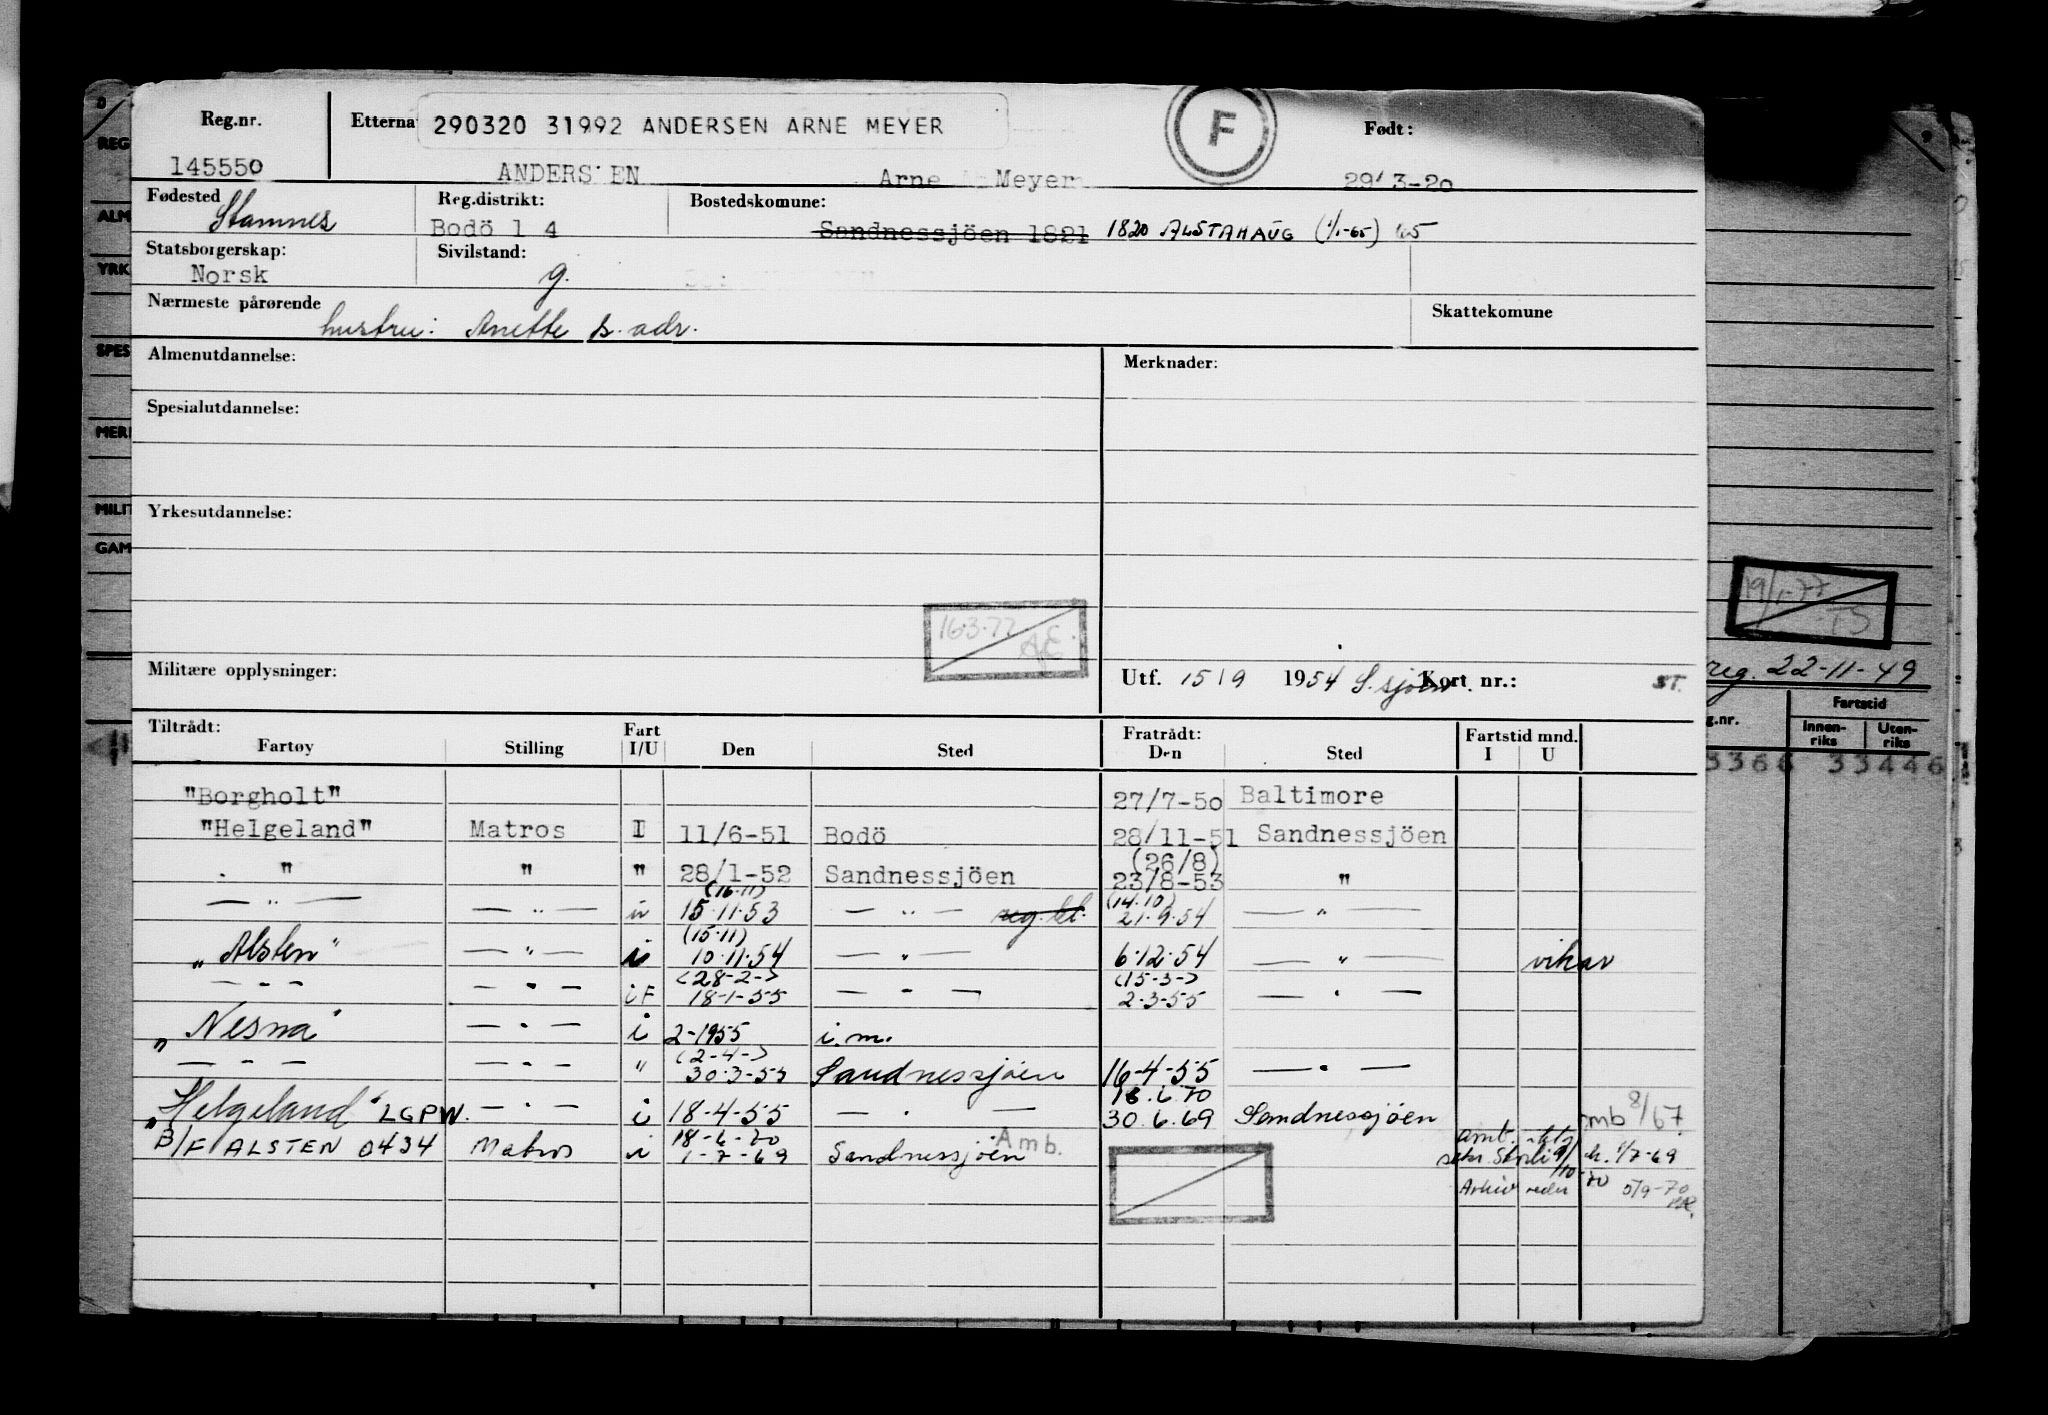 Reg.nr. Etterna 290320 31992 ANDERSEN ARNE MEYER F Født:
145550 ANDERS EN Arne Meyer 29/3-20
Fødested Stamnes Reg.distrikt: Bostedskomune:
Bodö 1 4 Sandnessjöen 1821 1820 ALSTAHAUG (1/1-65) 65
Statsborgerskap: Sivilstand:
Norsk g.
Nærmeste pårørende Skattekomune
hustru: Anette s. adr.
Almenutdannelse: Merknader:
Spesialutdannelse:
Yrkesutdannelse:
16.3.77
Militære opplysninger: Utf. 15/9 1954 S.sjöen. Kort nr.: ST.
Tiltrådt: Fart Fratrådt: Fartstid mnd.
Fartøy Stilling I/U Den Sted Den Sted I U
"Borgholt" 27/7-50 Baltimore
"Helgeland" Matros I 11/6-51 Bodö 28/11-51 Sandnessjöen
(26/8)
" " " 28/1-52 Sandnessjöen 23/8-53 "
(16.11) (14.10)
— " — — " — " 15.11.53 — " — reg. bl. 21.9.54 — " —
(15.11)
"Alsten" — " — i 10.11.54 — " — 6.12.54 — " — vikar
(28-2-) (15-3-)
— " — — " — i F 18-1-55 — " — 2-3-55 — " —
"Nesna" — " — i 2-1955 i.m.
(2-4-)
— " — — " — " 30-3-55 Sandnessjöen 16-4-55 — " —
18.6.70
"Helgeland" LGPW. — " — i 18-4-55 — " — 30.6.69 Sandnessjöen mb 8/67
18-6-70 Amb.
B/F ALSTEN 0434 Matros i 1-7-69 Sandnessjöen 1/7-69
Arkiv 5/9-70
REG
ALM
YRK
SPES
MER
MILIT
GAM
19/1-77
reg. 22-11-49
g.nr. Fartstid
Innen-riks Uten-riks
3366 33446